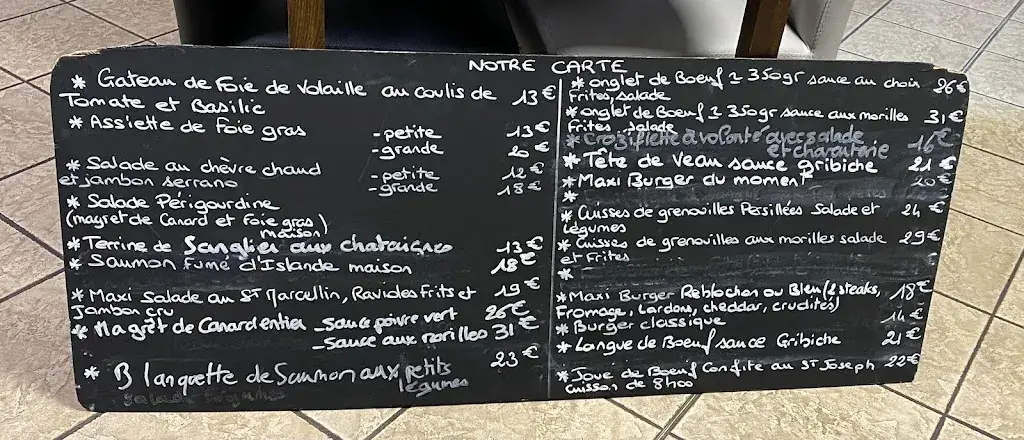 NOTRE CARTE
* Gateau de Foie de Volaille au coulis de 13€
Tomate et Basilic
* Assiette de Foie gras - petite 13€
- grande 20€
* Salade au chèvre chaud - petite 12€
et jambon serrano - grande 18€
* Salade Périgourdine
(magret de Canard et Foie gras
maison)
* Terrine de Sanglier aux chataignes 13€
* Saumon Fumé d'Islande maison 18€
* Maxi Salade au ST Marcellin, Ravioles Frits et 19€
Jambon cru
* Magret de Canard entier - Sauce poivre vert 26€
- Sauce aux morilles 31€
* Blanquette de Saumon aux petits 23€
légumes
* onglet de Boeuf 350gr sauce au choix 26€
Frites, salade
* onglet de Boeuf 350gr sauce aux morilles 31€
Frites, salade
* Croziflette à volonté avec salade 16€
et charcuterie
* Tête de Veau sauce gribiche 21€
* Maxi Burger du moment 20€
*
* Cuisses de grenouilles Persillées Salade et 24€
Légumes
* Cuisses de grenouilles aux morilles salade 29€
et Frites
*
* Maxi Burger Reblochon ou Bleu (2 steaks, 18€
Fromage, lardons, cheddar, crudités)
* Burger classique 14€
* Langue de Boeuf sauce Gribiche 21€
* Joue de Boeuf Confite au ST Joseph 22€
Cuisson de 8h00